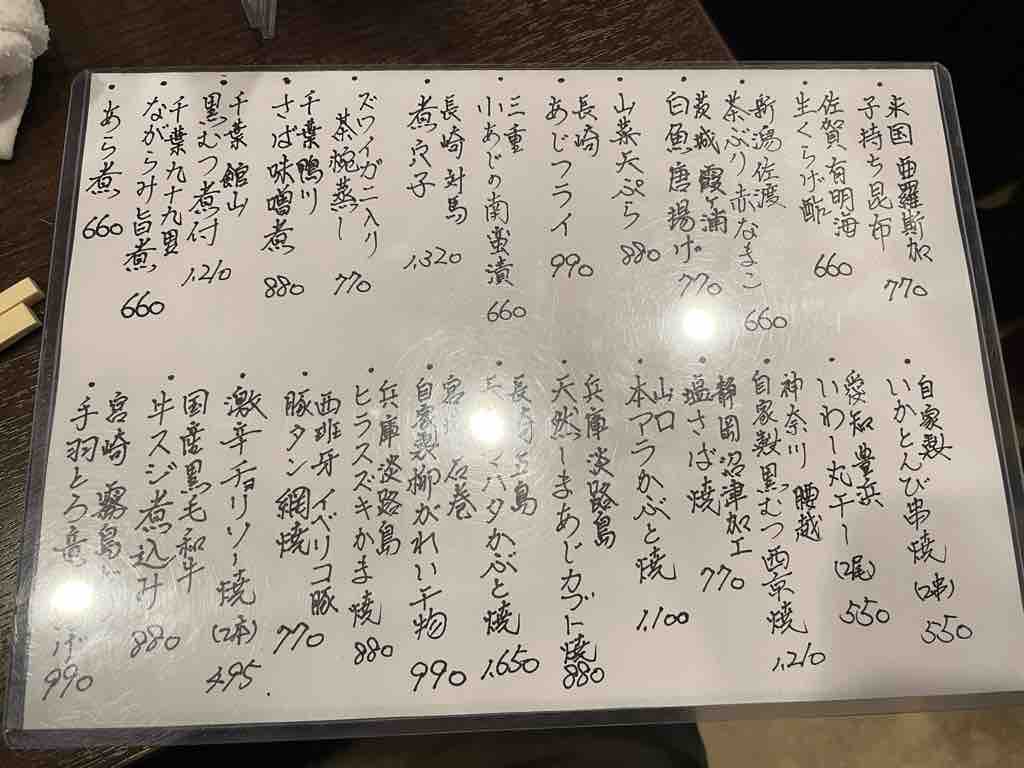 米国 亜羅斯加
子持ち昆布
770
佐賀 有明海
生くらげ酢
660
新潟 佐渡
茶ぶり赤なまこ
660
茨城 霞ヶ浦
白魚唐揚げ
770
山菜天ぷら
880
長崎
あじフライ
990
三重
小あじの南蛮漬
660
長崎 対馬
煮穴子
1,320
ズワイガニ入り
茶碗蒸し
770
千葉 鴨川
さば味噌煮
880
千葉 館山
黒むつ煮付
1,210
千葉 九十九里
ながらみ旨煮
660
あら煮
660
自家製
いかとんび串焼(2串)
550
愛知 豊浜
いわし丸干し(2尾)
550
神奈川 腰越
自家製黒むつ西京焼
1,210
静岡 沼津加工
塩さば焼
770
山口
本アラかぶと焼
1,100
兵庫 淡路島
天然しまあじカブト焼
880
長崎 五島
ハタかぶと焼
1,650
宮城 石巻
自家製柳がれい干物
990
兵庫 淡路島
ヒラスズキかま焼
880
西班牙 イベリコ豚
豚タン網焼
770
激辛チョリソー焼(2本)
495.
国産黒毛和牛
牛スジ煮込み
880
宮崎 霧島
手羽とろ
げ
990